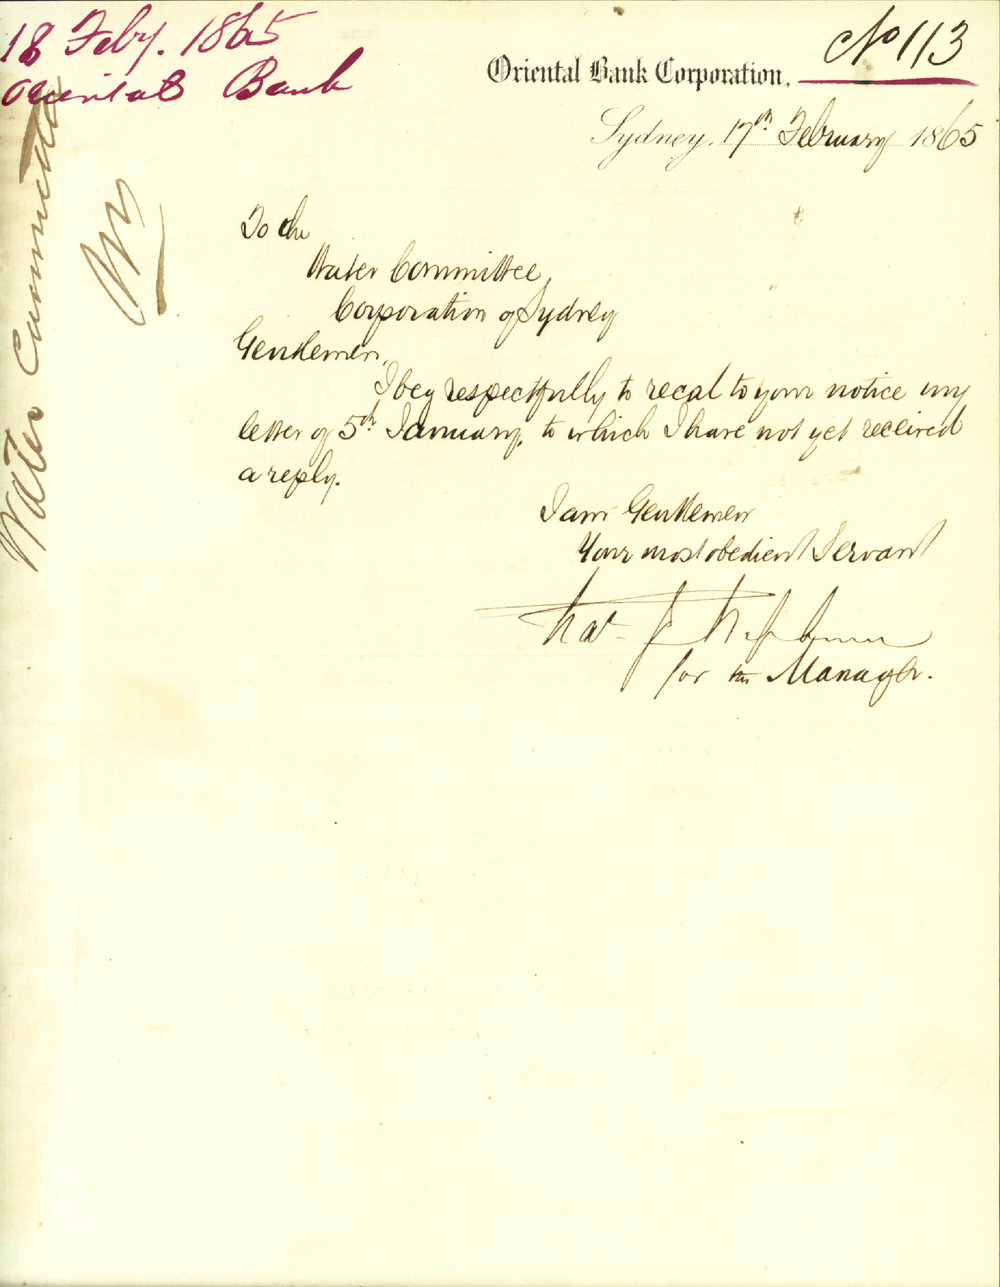 18 Feby. 1865
Oriental Bank
No 113
Oriental Bank Corporation,
Sydney, 17th February 1865
Water Committee
To the
Water Committee
Corporation of Sydney
Gentlemen,
I beg respectfully to recal to your notice my
letter of 5th January, to which I have not yet received
a reply.
I am Gentlemen
Your most obedient Servant
for the Manager.